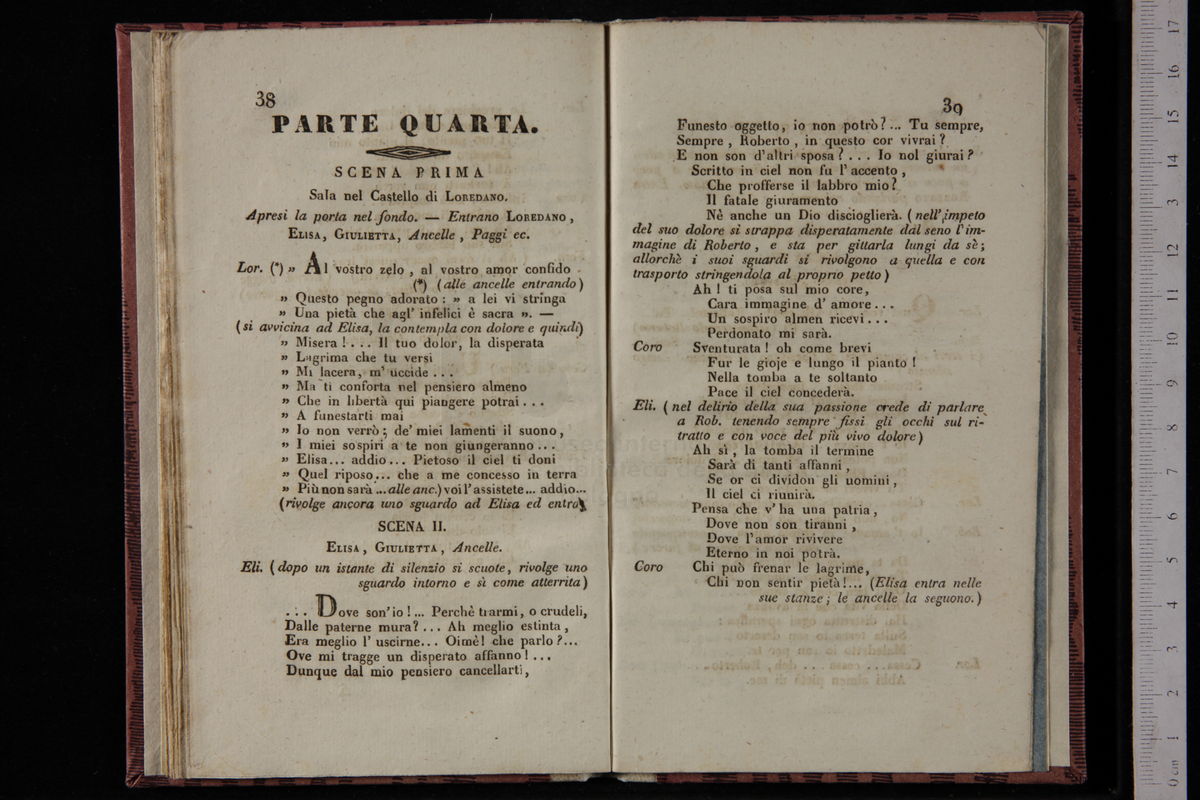 38
PARTE QUARTA.
SCENA PRIMA
Sala nel Castello di LOREDANO.
Apresi la porta nel fondo. — Entrano LOREDANO,
ELISA, GIULIETTA, Ancelle, Paggi ec.
Lor. (*) » Al vostro zelo, al vostro amor confido
(*) (alle ancelle entrando)
» Questo pegno adorato: » a lei vi stringa
» Una pietà che agl' infelici è sacra ». —
(si avvicina ad Elisa, la contempla con dolore e quindi)
» Misera!... Il tuo dolor, la disperata
» Lagrima che tu versi
» Mi lacera, m' uccide...
» Ma ti conforta nel pensiero almeno
» Che in libertà qui piangere potrai...
» A funestarti mai
» Io non verrò; de' miei lamenti il suono,
» I miei sospiri a te non giungeranno...
» Elisa... addio... Pietoso il ciel ti doni
» Quel riposo... che a me concesso in terra
» Più non sarà ...alle anc.) voi l'assistete... addio...
(rivolge ancora uno sguardo ad Elisa ed entra)
SCENA II.
ELISA, GIULIETTA, Ancelle.
Eli. (dopo un istante di silenzio si scuote, rivolge uno
sguardo intorno e sì come atterrita)
... Dove son' io!... Perchè trarmi, o crudeli,
Dalle paterne mura?... Ah meglio estinta,
Era meglio l' uscirne... Oimè! che parlo?...
Ove mi tragge un disperato affanno!...
Dunque dal mio pensiero cancellarti,
39
Funesto oggetto, io non potrò?... Tu sempre,
Sempre, Roberto, in questo cor vivrai?
E non son d'altri sposa?... Io nol giurai?
Scritto in ciel non fu l' accento,
Che profferse il labbro mio?
Il fatale giuramento
Nè anche un Dio discioglierà. (nell' impeto
del suo dolore si strappa disperatamente dal seno l' im-
magine di Roberto, e sta per gittarla lungi da sè;
allorchè i suoi sguardi si rivolgono a quella e con
trasporto stringendola al proprio petto)
Ah! ti posa sul mio core,
Cara immagine d' amore...
Un sospiro almen ricevi...
Perdonato mi sarà.
Coro Sventurata! oh come brevi
Fur le gioje e lungo il pianto!
Nella tomba a te soltanto
Pace il ciel concederà.
Eli. (nel delirio della sua passione crede di parlare
a Rob. tenendo sempre fissi gli occhi sul ri-
tratto e con voce del più vivo dolore)
Ah sì, la tomba il termine
Sarà di tanti affanni,
Se or ci dividon gli uomini,
Il ciel ci riunirà.
Pensa che v' ha una patria,
Dove non son tiranni,
Dove l' amor rivivere
Eterno in noi potrà.
Coro Chi può frenar le lagrime,
Chi non sentir pietà!... (Elisa entra nelle
sue stanze; le ancelle la seguono.)
17
16
15
14
13
12
11
10
9
8
7
6
5
4
3
2
1
0 cm